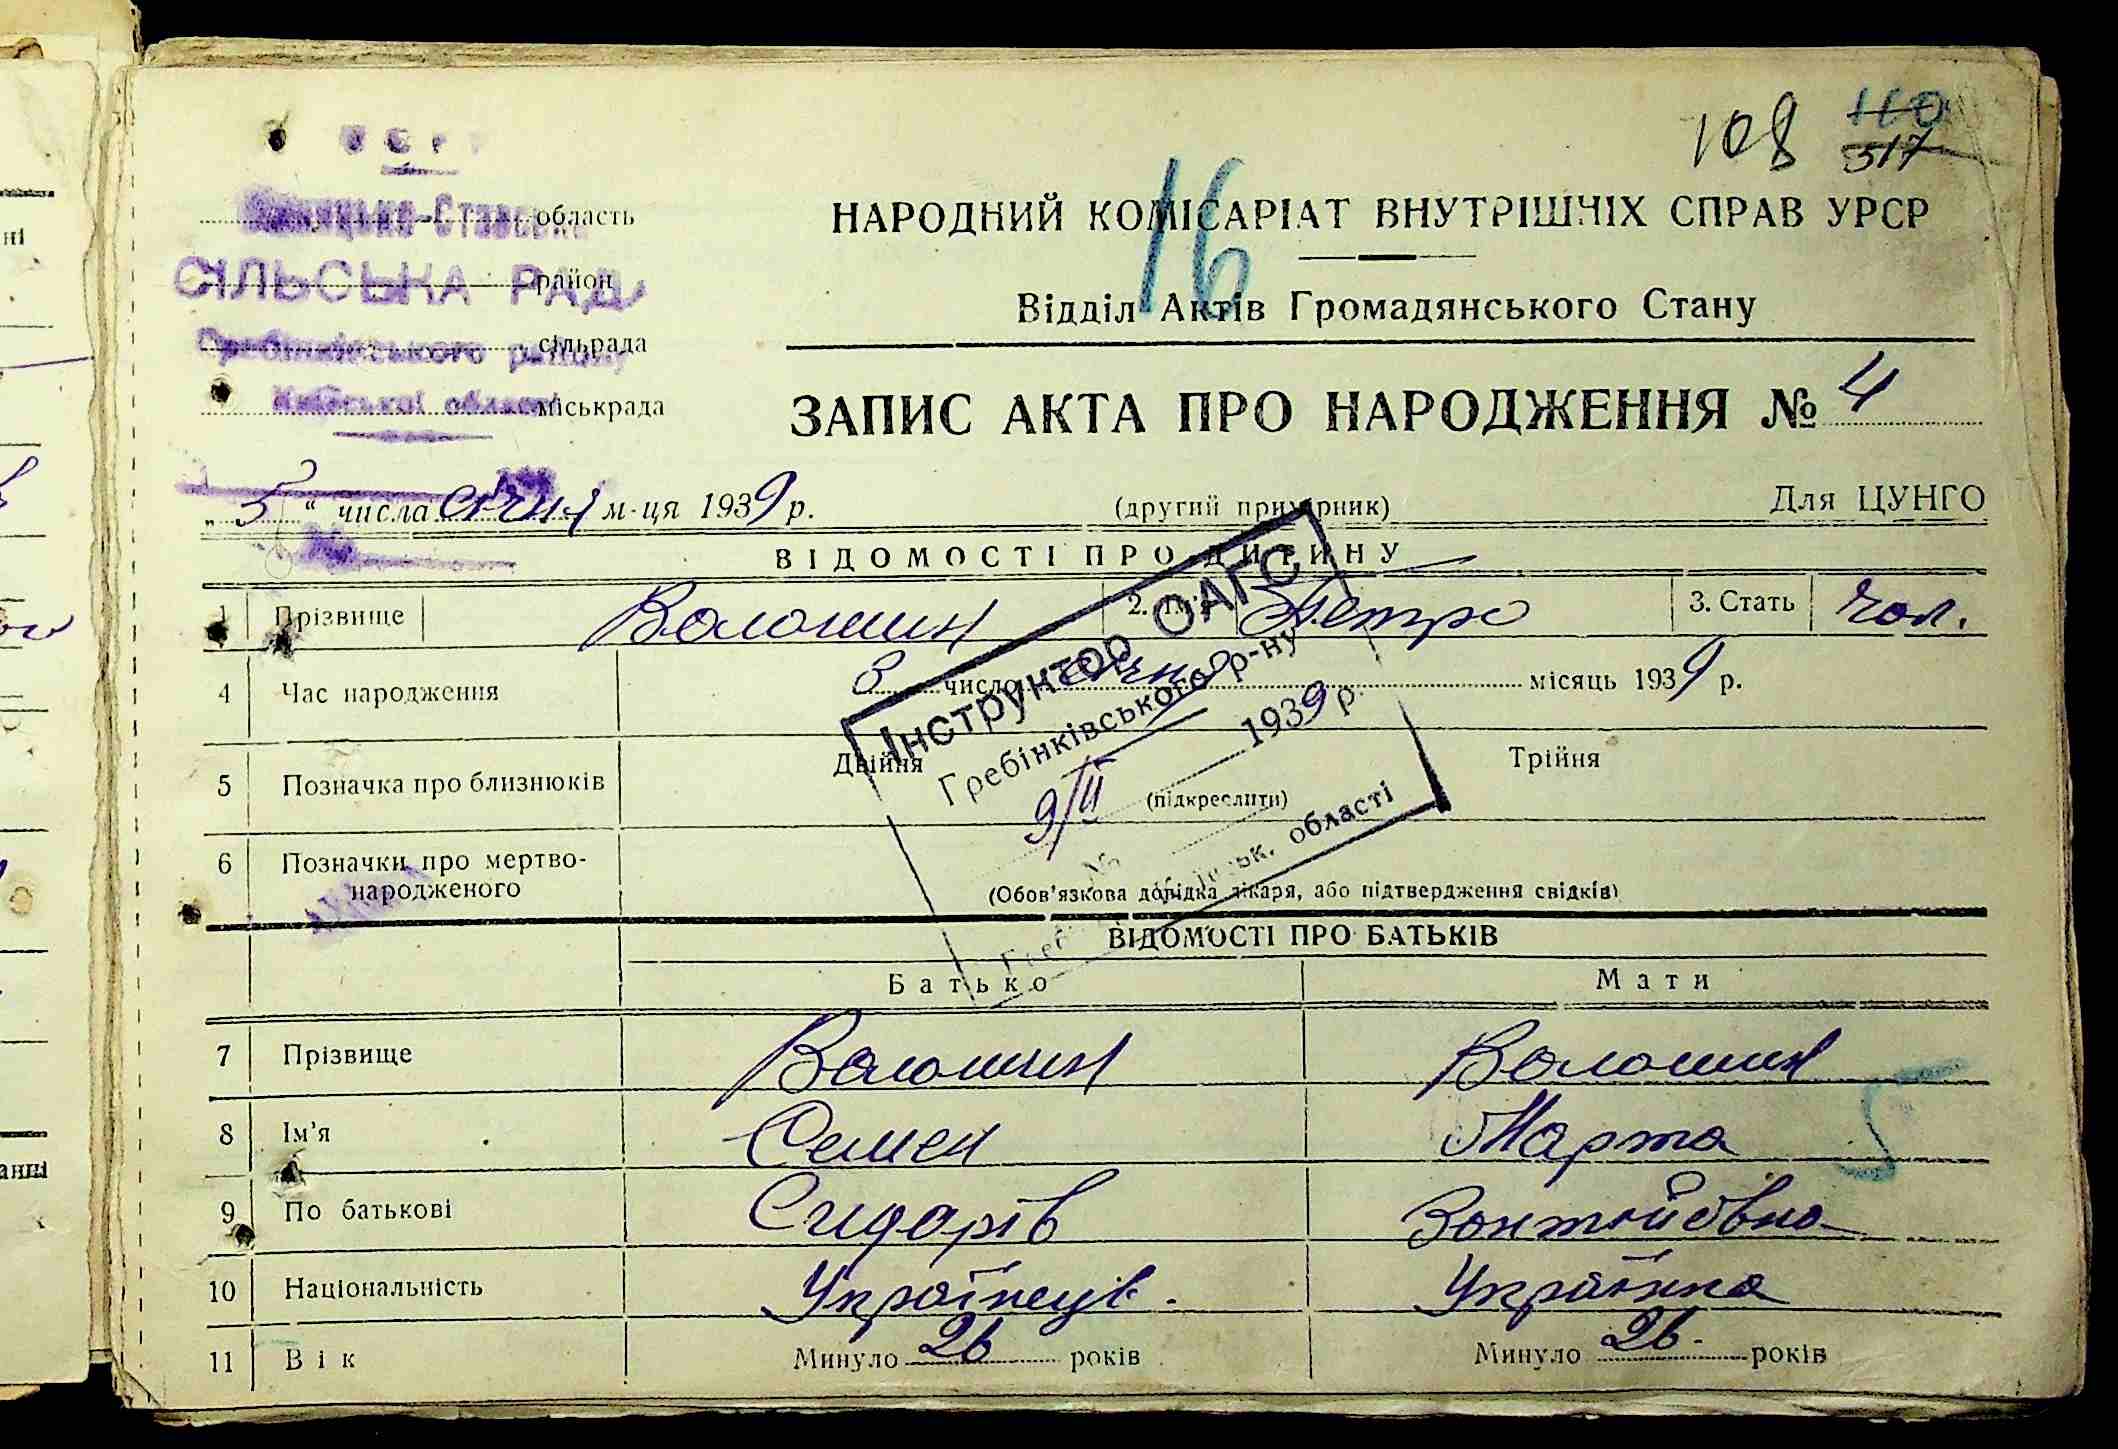 108 110
517
16
область
НАРОДНИЙ КОМІСАРІАТ ВНУТРІШНІХ СПРАВ УРСР
СІЛЬСЬКА РАДА
район
Відділ Актів Громадянського Стану
Гребінківського району
сільрада
Київської області
міськрада
ЗАПИС АКТА ПРО НАРОДЖЕННЯ № 4
„5“ числа січня м-ця 1939 р.
(другий примірник)
Для ЦУНГО
ВІДОМОСТІ ПРО ДИТИНУ
1 Прізвище Волошин 2. Ім'я Петро 3. Стать чол.
4 Час народження 3 число січня місяць 1939 р.
Інструктор ОАГС
Гребінківського р-ну
9/II 1939 р.
№
області
5 Позначка про близнюків Двійня (підкреслити) Трійня
6 Позначки про мертво-
народженого
(Обов'язкова довідка лікаря, або підтвердження свідків)
ВІДОМОСТІ ПРО БАТЬКІВ
Батько Мати
7 Прізвище Волошин Волошин
8 Ім'я Семен Марта
9 По батькові Сидарів
10 Національність Українець. Українка
11 Вік Минуло 26 років Минуло 26 років
ні
анні